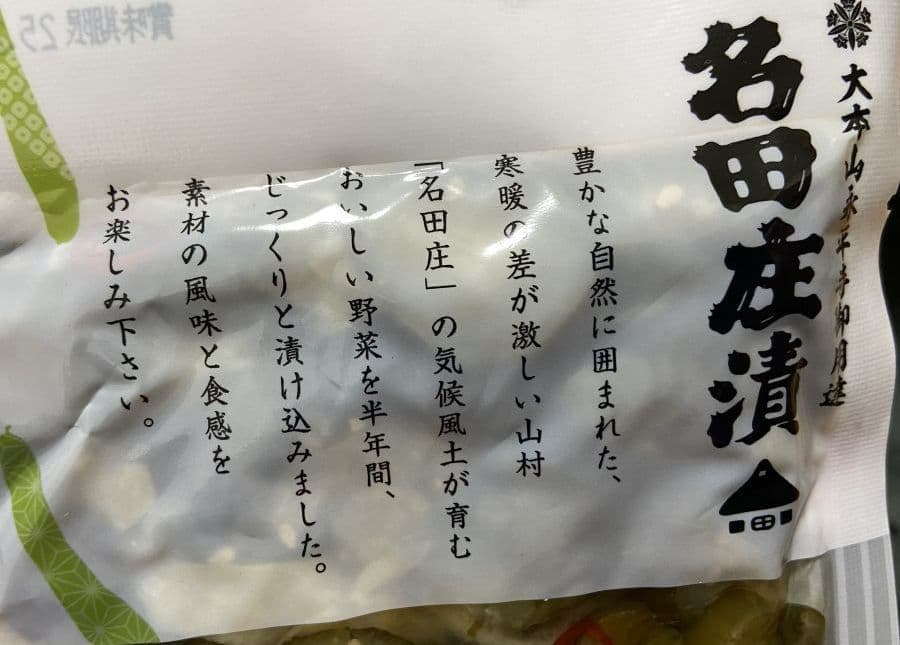 大本山永平寺御用達
名田庄漬
田
豊かな自然に囲まれた、
寒暖の差が激しい山村
「名田庄」の気候風土が育む
おいしい野菜を半年間、
じっくりと漬け込みました。
素材の風味と食感を
お楽しみ下さい。
賞味期限 25